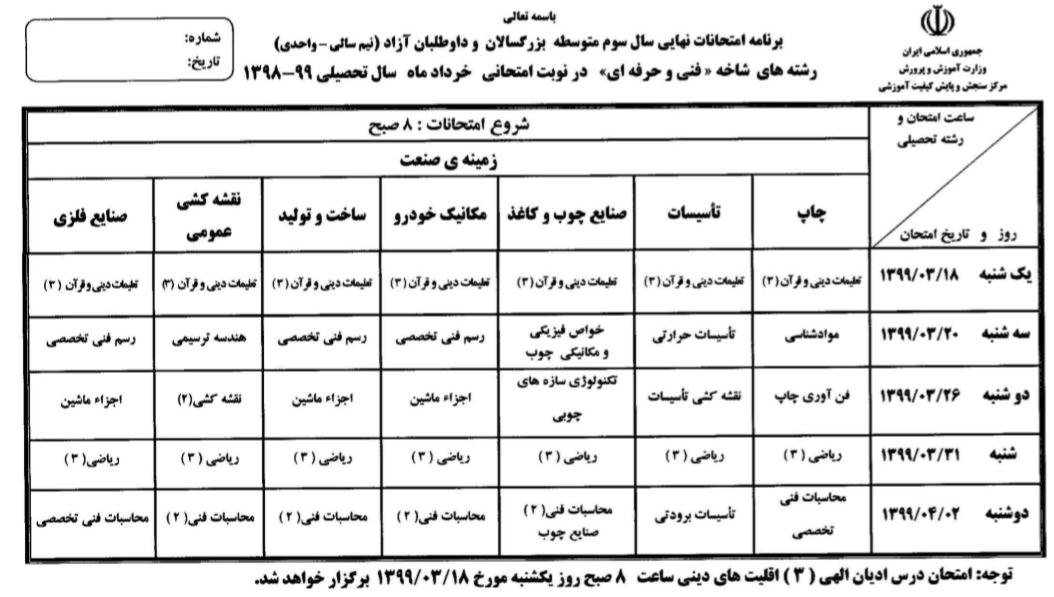 باسمه تعالی
برنامه امتحانات نهایی سال سوم متوسطه بزرگسالان و داوطلبان آزاد (نیم سالی - واحدی)
رشته های شاخه «فنی و حرفه ای» در نوبت امتحانی خرداد ماه سال تحصیلی ۹۹-۱۳۹۸
جمهوری اسلامی ایران
وزارت آموزش و پرورش
مرکز سنجش و پایش کیفیت آموزشی
شماره:
تاریخ:
ساعت امتحان و
رشته تحصیلی
روز و تاریخ امتحان
شروع امتحانات : ۸ صبح
زمینه ی صنعت
چاپ
تأسیسات
صنایع چوب و کاغذ
مکانیک خودرو
ساخت و تولید
نقشه کشی
عمومی
صنایع فلزی
یک شنبه ۱۳۹۹/۰۳/۱۸
تعلیمات دینی و قرآن (۳)
تعلیمات دینی و قرآن (۳)
تعلیمات دینی و قرآن (۳)
تعلیمات دینی و قرآن (۳)
تعلیمات دینی و قرآن (۳)
تعلیمات دینی و قرآن (۳)
تعلیمات دینی و قرآن (۳)
سه شنبه ۱۳۹۹/۰۳/۲۰
موادشناسی
تأسیسات حرارتی
خواص فیزیکی
و مکانیکی چوب
رسم فنی تخصصی
رسم فنی تخصصی
هندسه ترسیمی
رسم فنی تخصصی
دو شنبه ۱۳۹۹/۰۳/۲۶
فن آوری چاپ
نقشه کشی تأسیسات
تکنولوژی سازه های
چوبی
اجزاء ماشین
اجزاء ماشین
نقشه کشی(۲)
اجزاء ماشین
شنبه ۱۳۹۹/۰۳/۳۱
ریاضی (۳)
ریاضی (۳)
ریاضی (۳)
ریاضی (۳)
ریاضی (۳)
ریاضی (۳)
ریاضی(۳)
دوشنبه ۱۳۹۹/۰۴/۰۲
محاسبات فنی
تخصصی
تأسیسات برودتی
محاسبات فنی(۲)
صنایع چوب
محاسبات فنی(۲)
محاسبات فنی(۲)
محاسبات فنی(۲)
محاسبات فنی تخصصی
توجه: امتحان درس ادیان الهی (۳) اقلیت های دینی ساعت ۸ صبح روز یکشنبه مورخ ۱۳۹۹/۰۳/۱۸ برگزار خواهد شد.